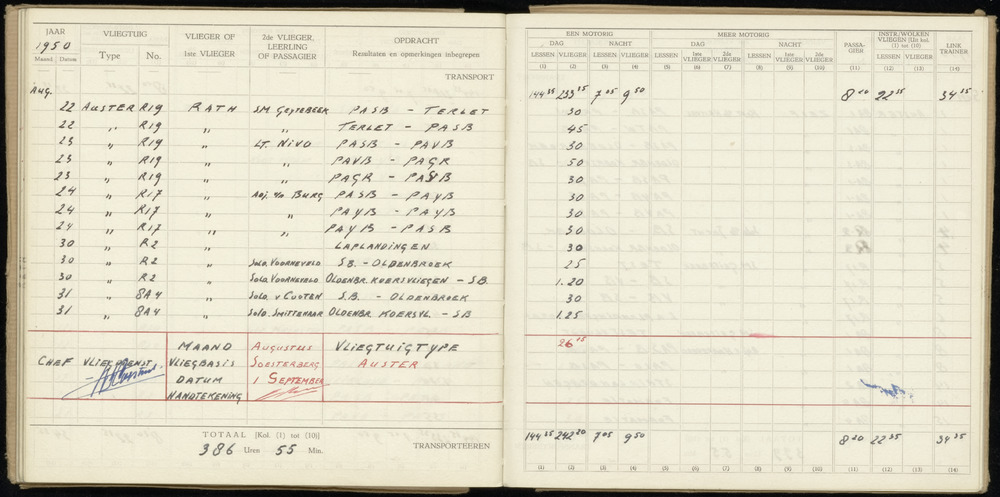 JAAR VLIEGTUIG VLIEGER OF 2de VLIEGER, OPDRACHT
1950 1ste VLIEGER LEERLING Resultaten en opmerkingen inbegrepen
Maand Datum Type No. OF PASSAGIER
TRANSPORT
Aug.
22 AUSTER R19 RATH SM PASB - TERLET
22 " R19 " TERLET - PASB
23 " R19 " LT. NIVO PASB - PAVB
23 " R19 " PAVB - PAGR
23 " R19 " PAGR - PASB
24 " R17 " Adj. BURG PASB - PAYB
24 " R17 " " PAYB - PAYB
24 " R17 " " PAYB - PASB
30 " R2 " LAPLANDINGEN
30 " R2 Sold. VOORNEVELD S.B. - OLDENBROEK
30 " R2 " Sold. VOORNEVELD OLDENBR. KOERSVLIEGEN - S.B.
31 " 8A4 " Sold. v CUOTEN S.B. - OLDENBROEK
31 " 8A4 " Sold. SMITTENAAR OLDENBR. KOERSVL - SB
MAAND AUGUSTUS VLIEGTUIGTYPE
CHEF VLIEGDIENST VLIEGBASIS SOESTERBERG AUSTER
DATUM 1 SEPTEMBER
HANDTEKENING
TOTAAL [Kol. (1) tot (10)]
386 Uren 55 Min. TRANSPORTEEREN
EEN MOTORIG MEER MOTORIG INSTR./WOLKEN
DAG NACHT DAG NACHT PASSA- VLIEGEN [Uit kol. LINK
LESSEN VLIEGER LESSEN VLIEGER LESSEN 1ste VLIEGER 2de VLIEGER LESSEN 1ste VLIEGER 2de VLIEGER GIER (1) tot (10)] TRAINER
LESSEN VLIEGER
(1) (2) (3) (4) (5) (6) (7) (8) (9) (10) (11) (12) (13) (14)
144 35 233 15 7 05 9 50 8 20 22 35 34 35
30
45
30
50
30
30
30
30
30
25
1.20
30
1.25
26 15
144 35 242 20 7 05 9 50 8 20 22 35 34 35
(1) (2) (3) (4) (5) (6) (7) (8) (9) (10) (11) (12) (13) (14)